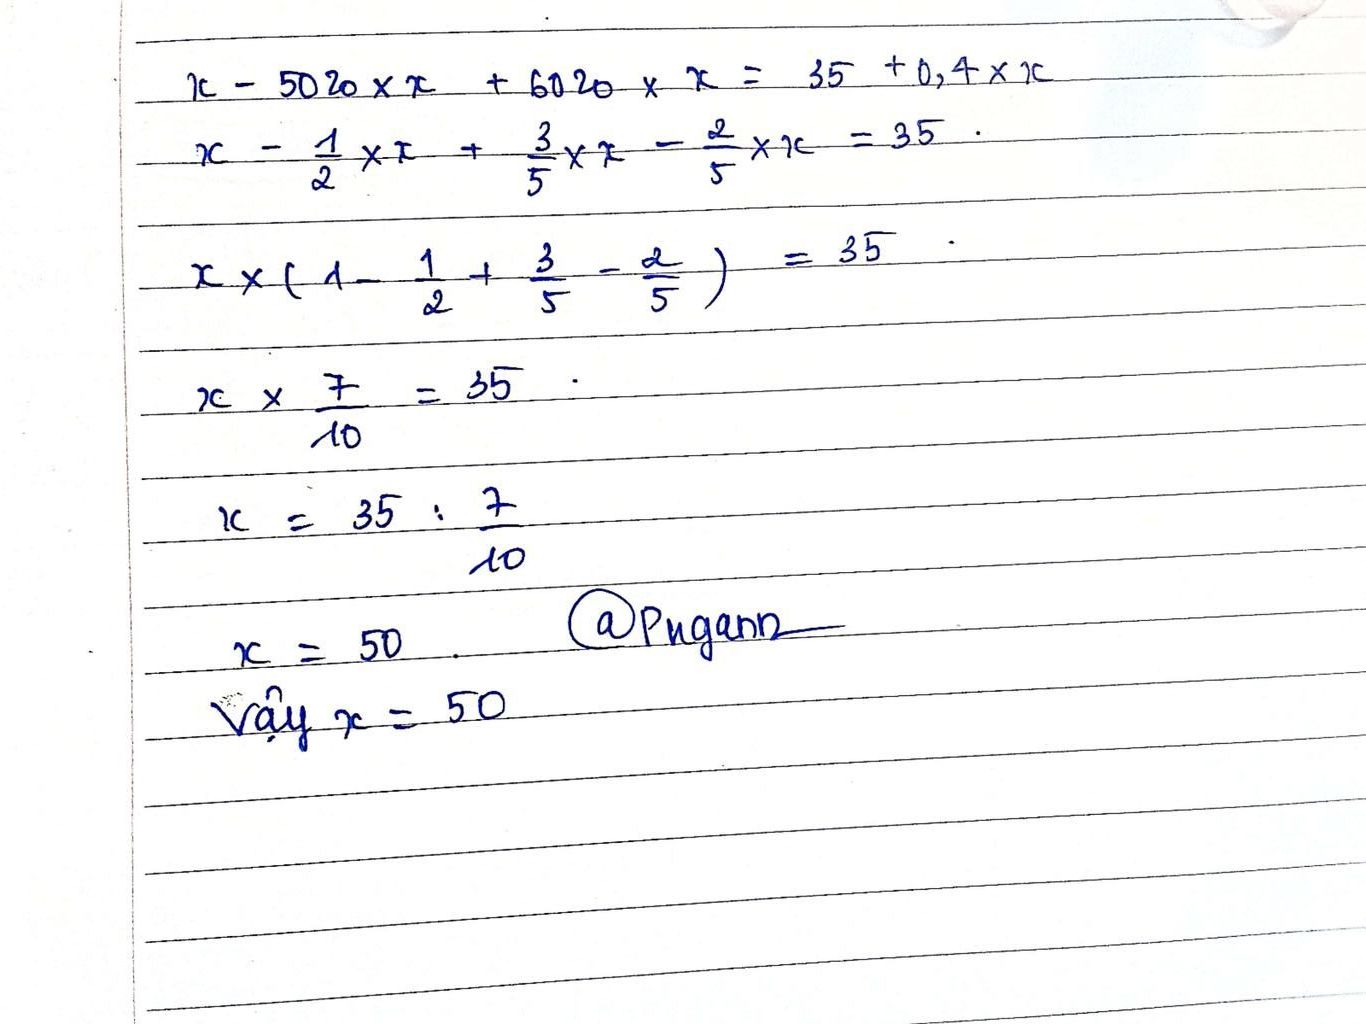 x - 50% × x + 60% × x = 35 + 0,4 × x
x - 1/2 × x + 3/5 × x - 2/5 × x = 35.
x × (1 - 1/2 + 3/5 - 2/5) = 35.
x × 7/10 = 35.
x = 35 : 7/10
x = 50.
@Pngann
Vậy x = 50